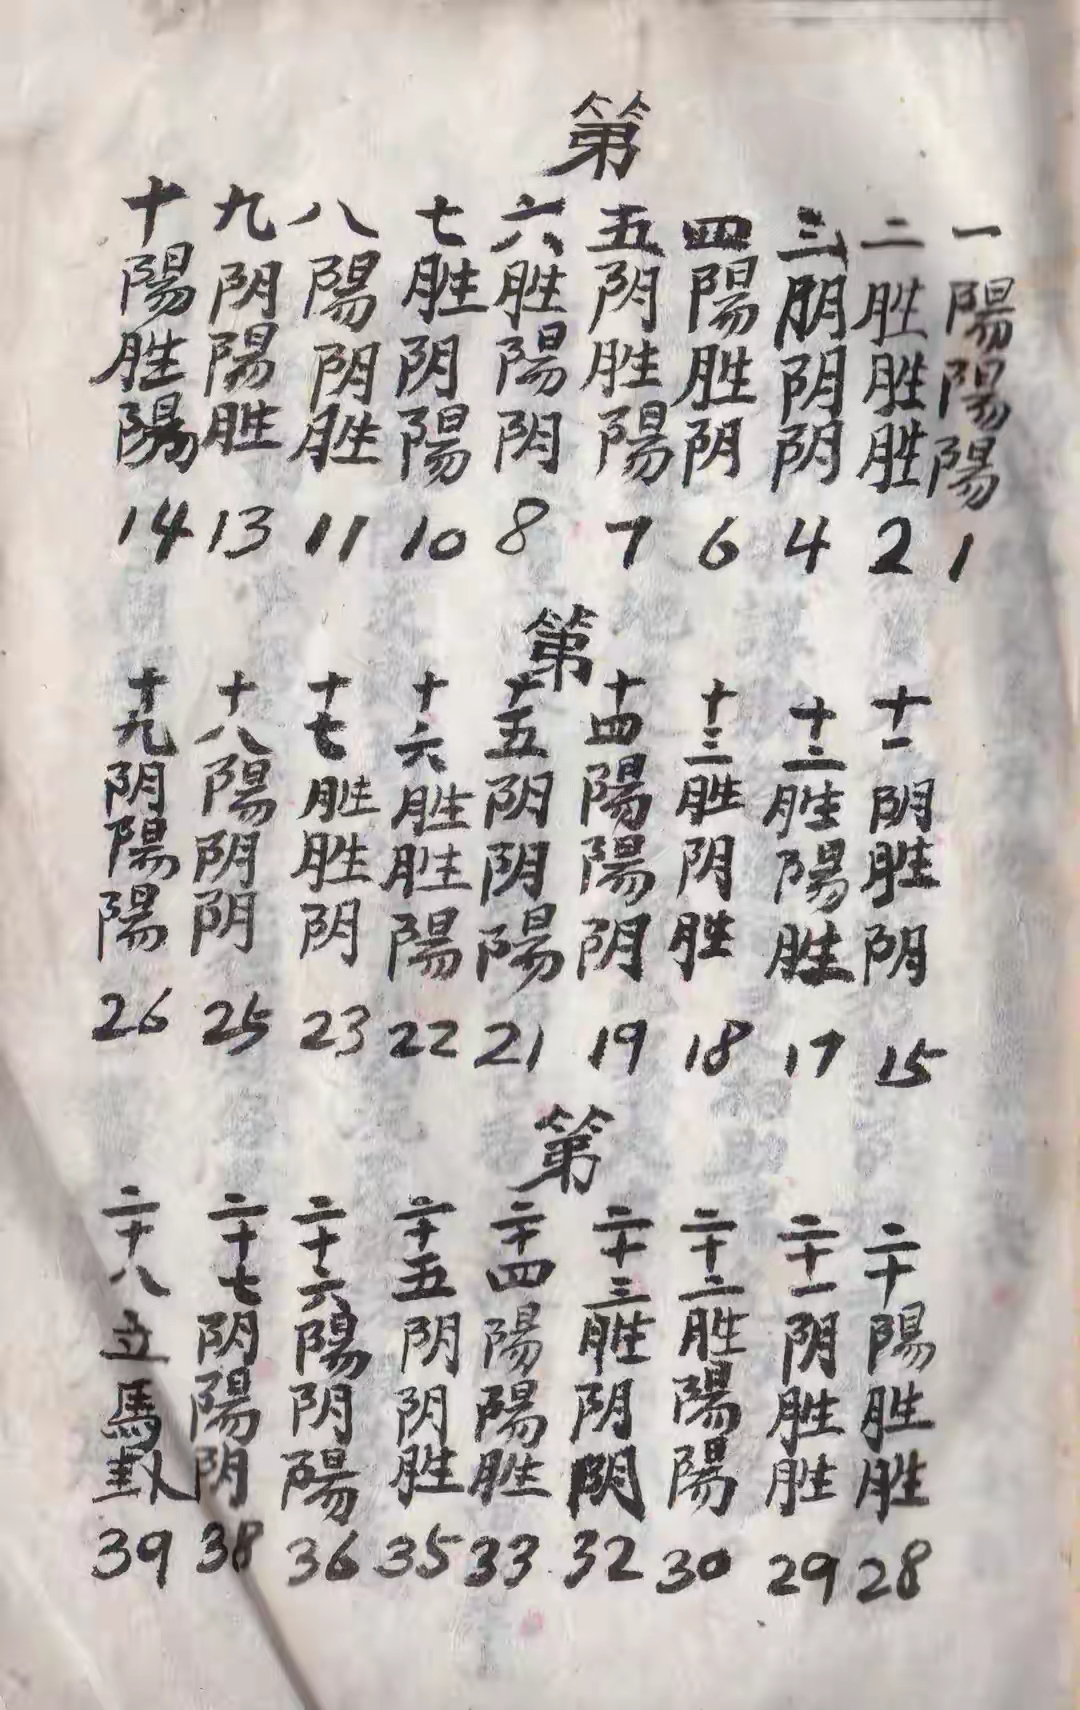 第
一陽陽陽1
二胜胜胜2
三阴阴阴4
四陽胜阴6
五阴胜陽7
六胜陽阴8
七胜阴陽10
八陽阴胜11
九阴陽胜13
十陽胜陽14
第
十一阴胜阴15
十二胜陽胜17
十三胜阴胜18
十四陽陽阴19
十五阴阴陽21
十六胜胜陽22
十七胜胜阴23
十八陽阴阴25
十九阴陽陽26
第
二十陽胜胜28
二十一阴胜胜29
二十二胜陽陽30
二十三胜阴阴32
二十四陽陽胜33
二十五阴阴胜35
二十六陽阴陽36
二十七阴陽阴38
二十八立馬卦39